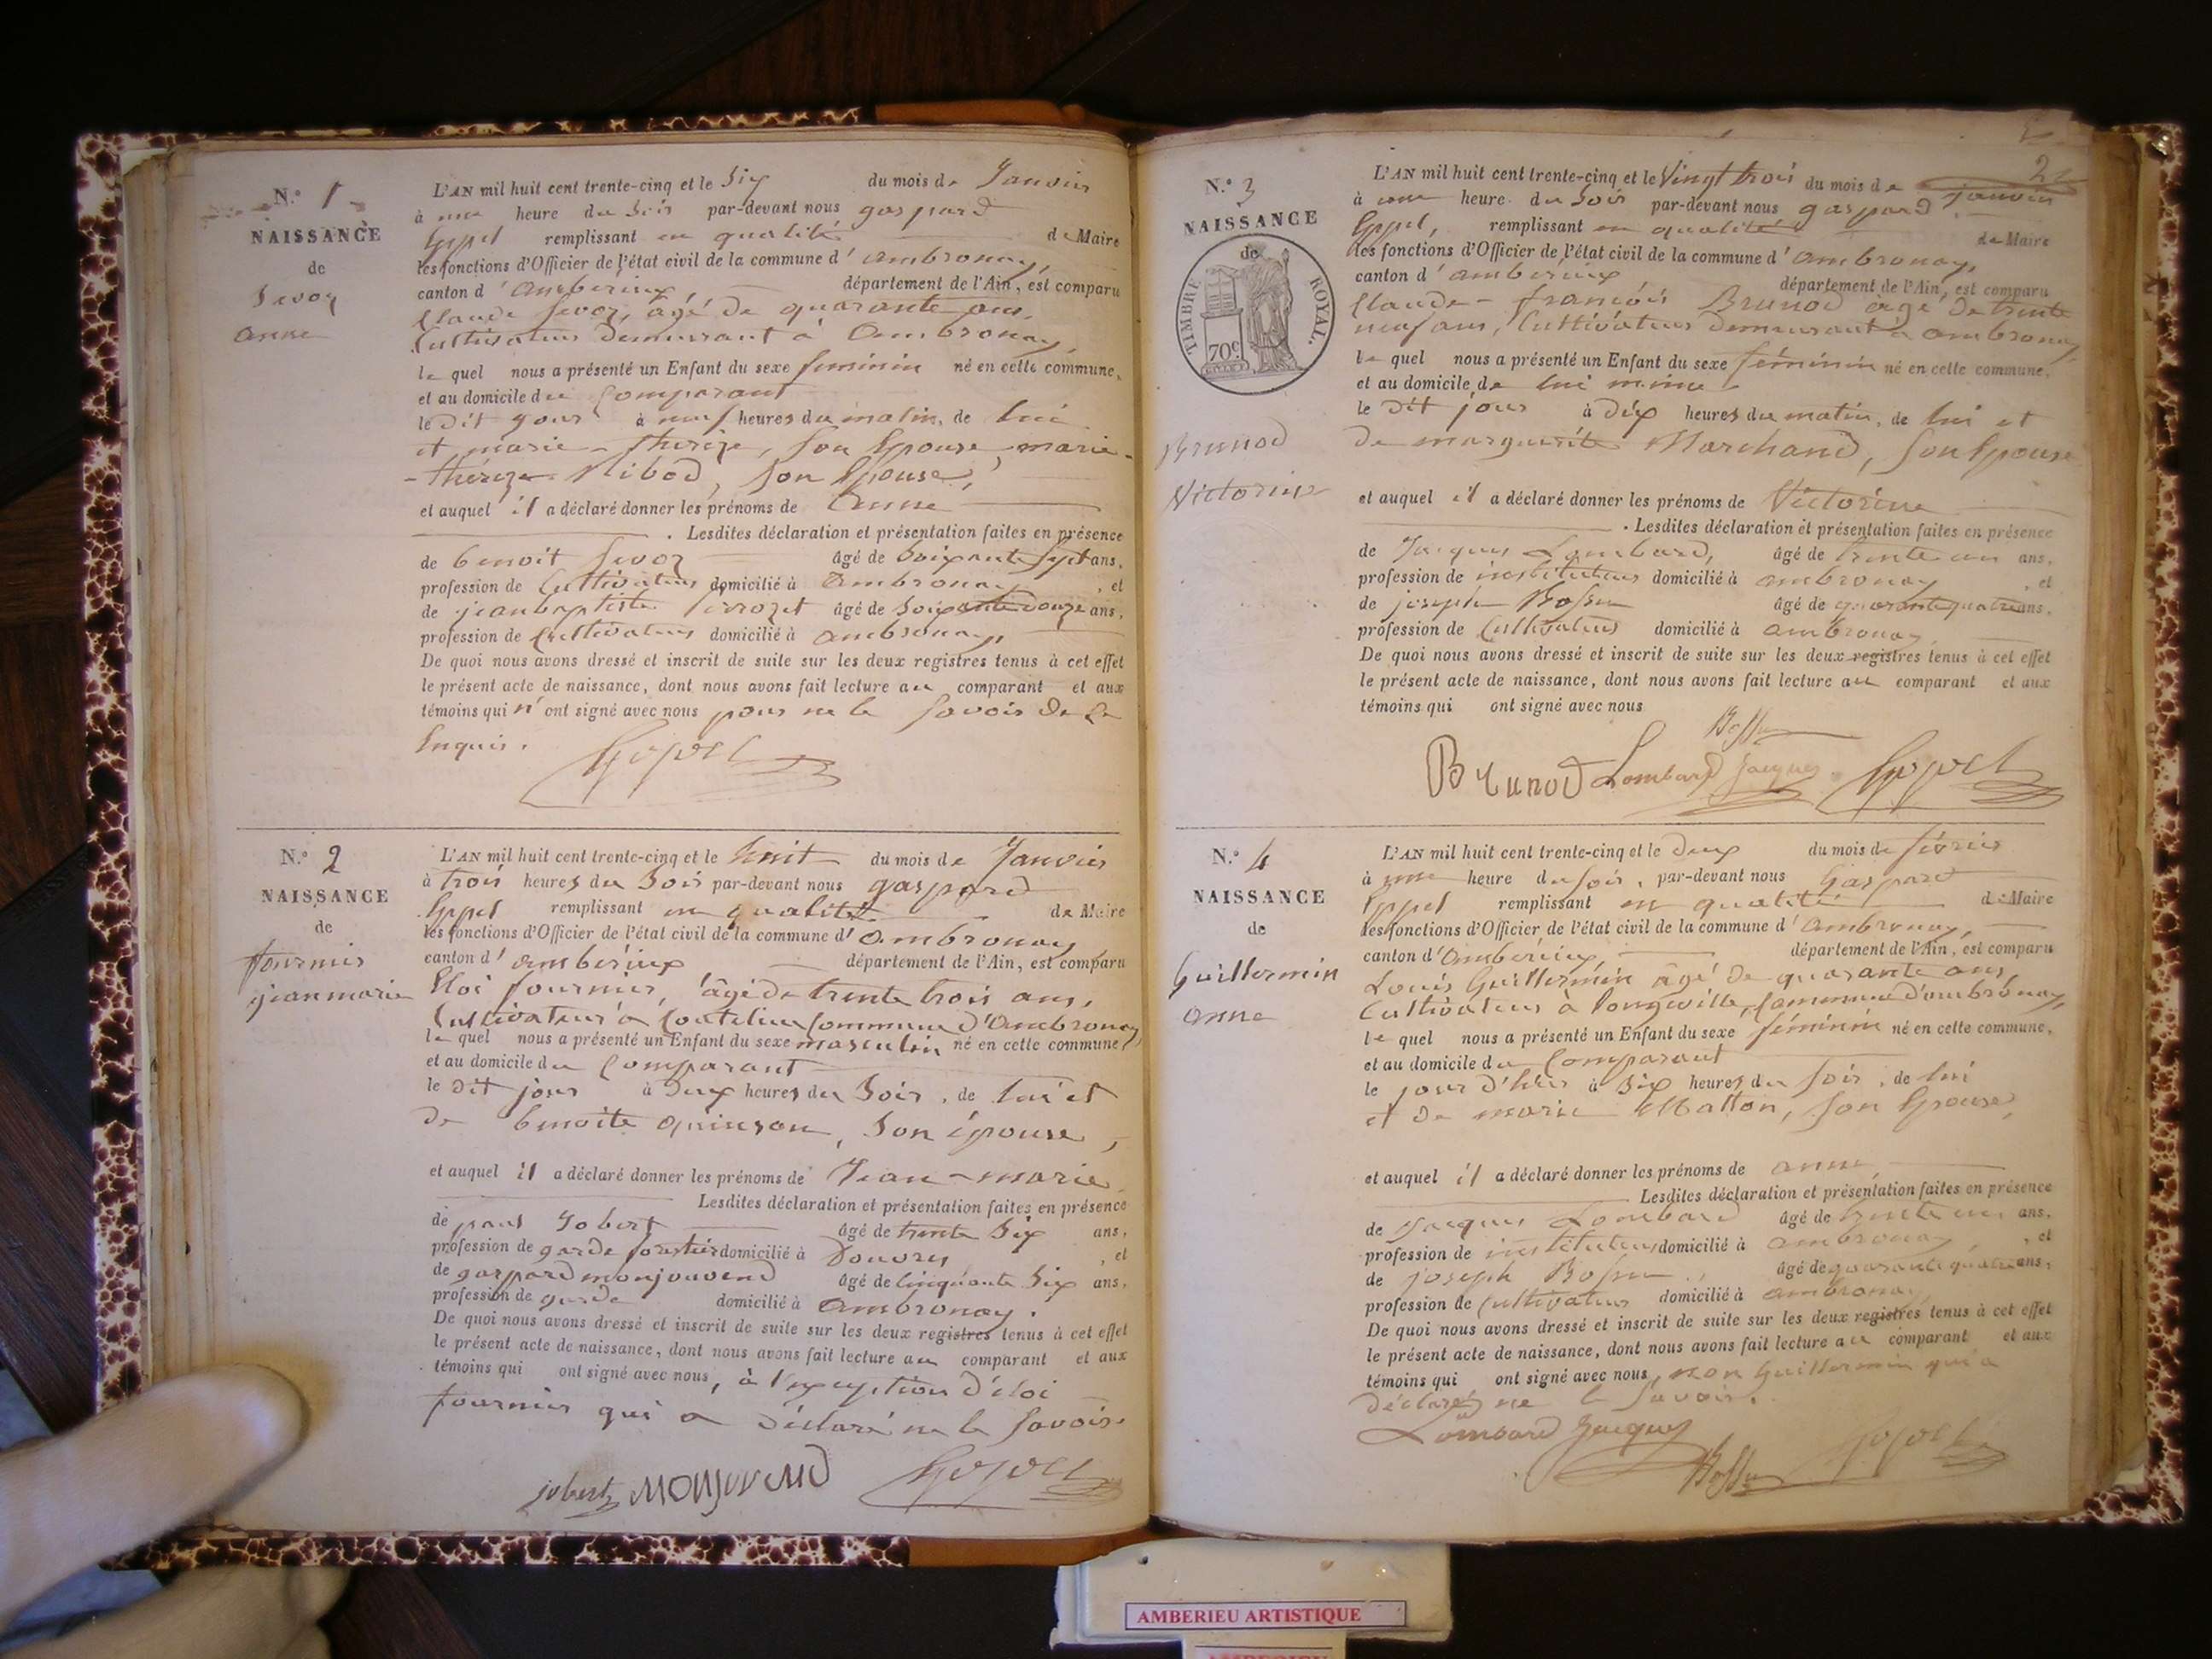 N.° 1
NAISSANCE
de
Sevoz
anne
L'AN mil huit cent trente-cinq et le Six du mois de Janvier
à une heure du Soir par-devant nous gaspard
Eppel remplissant en qualité de Maire
les fonctions d'Officier de l'état civil de la commune d'ambronay,
canton d'ambérieux, département de l'Ain, est comparu
Claude Sevoz, âgé de quarante ans,
Cultivateur demeurant à Ambronay,
le quel nous a présenté un Enfant du sexe féminin né en cette commune,
et au domicile du Comparant
le dit jour à neuf heures du matin, de lui
et marie-thereze, son Epouse marie-
-thérèze Ribod, son Epouse,
et auquel il a déclaré donner les prénoms de Anne
. Lesdites déclaration et présentation faites en présence
de benoit Sevoz âgé de Soixante Sept ans,
profession de Cultivateur domicilié à Ambronay, et
de jean baptiste âgé de Soixante douze ans,
profession de Cultivateur domicilié à ambronay,
De quoi nous avons dressé et inscrit de suite sur les deux registres tenus à cet effet
le présent acte de naissance, dont nous avons fait lecture au comparant et aux
témoins qui n'ont signé avec nous pour ne le Savoir de ce
Enquis.
Eppel
N.° 2
NAISSANCE
de
fournier
jean marie
L'AN mil huit cent trente-cinq et le huit du mois de Janvier
à trois heures du Soir par-devant nous gaspard
Eppel remplissant en qualité de Maire
les fonctions d'Officier de l'état civil de la commune d'ambronay
canton d'ambérieux département de l'Ain, est comparu
Eloi fournier, âgé de trente trois ans,
Cultivateur à Coutelieu Commune d'Ambronay
le quel nous a présenté un Enfant du sexe masculin né en cette commune,
et au domicile du Comparant
le dit jour à deux heures du Soir, de lui et
de benoite quinson, Son épouse,
et auquel il a déclaré donner les prénoms de Jean-marie
Lesdites déclaration et présentation faites en présence
de paul Jobert âgé de trente Six ans,
profession de garde forestier domicilié à Douvres, et
de gaspard monjouvend âgé de Cinquante Six ans,
profession de garde domicilié à Ambronay.
De quoi nous avons dressé et inscrit de suite sur les deux registres tenus à cet effet
le présent acte de naissance, dont nous avons fait lecture au comparant et aux
témoins qui ont signé avec nous, à l'exception d'éloi
fournier qui a déclaré ne le Savoir.
jobert Eppel
2
N.° 3
NAISSANCE
de
TIMBRE ROYAL.
70c
Brunod
Victorine
L'AN mil huit cent trente-cinq et le Vingt trois du mois de janvier
à une heure du Soir par-devant nous gaspard
Eppel, remplissant en qualité de Maire
les fonctions d'Officier de l'état civil de la commune d'ambronay,
canton d'ambérieux département de l'Ain, est comparu
Claude-françois Brunod âgé de trente
neuf ans, Cultivateur demeurant à ambronay
le quel nous a présenté un Enfant du sexe féminin né en cette commune,
et au domicile de lui même
le dit jour à dix heures du matin, de lui et
de marguerite Marchand, Son Epouse
et auquel il a déclaré donner les prénoms de Victorine
. Lesdites déclaration et présentation faites en présence
de Jacques Lombard, âgé de trente un ans,
profession de instituteur domicilié à ambronay, et
de joseph Bossu âgé de quarante quatre ans,
profession de Cultivateur domicilié à ambronay
De quoi nous avons dressé et inscrit de suite sur les deux registres tenus à cet effet
le présent acte de naissance, dont nous avons fait lecture au comparant et aux
témoins qui ont signé avec nous
Bossu
Brunod Lombard Jacques Eppel
N.° 4
NAISSANCE
de
Guillermin
anne
L'AN mil huit cent trente-cinq et le deux du mois de février
à une heure du soir, par-devant nous Gaspard
Eppel remplissant en qualité de Maire
les fonctions d'Officier de l'état civil de la commune d'Ambronay,
canton d'Ambérieux, département de l'Ain, est comparu
Louis Guillermin âgé de quarante ans
Cultivateur à longeville, Commune d'ambronay,
le quel nous a présenté un Enfant du sexe féminin né en cette commune,
et au domicile du Comparant
le jour d'hier à Six heures du Soir, de lui
et de marie Matton, Son Epouse,
et auquel il a déclaré donner les prénoms de anne
Lesdites déclaration et présentation faites en présence
de Jacques Lombard âgé de trente un ans,
profession de instituteur domicilié à ambronay, et
de joseph Bossu, âgé de quarante quatre ans,
profession de Cultivateur domicilié à ambronay
De quoi nous avons dressé et inscrit de suite sur les deux registres tenus à cet effet
le présent acte de naissance, dont nous avons fait lecture au comparant et aux
témoins qui ont signé avec nous, non Guillermin qui a
déclaré ne le Savoir.
Lombard Jacques
Bossu Eppel
AMBERIEU ARTISTIQUE